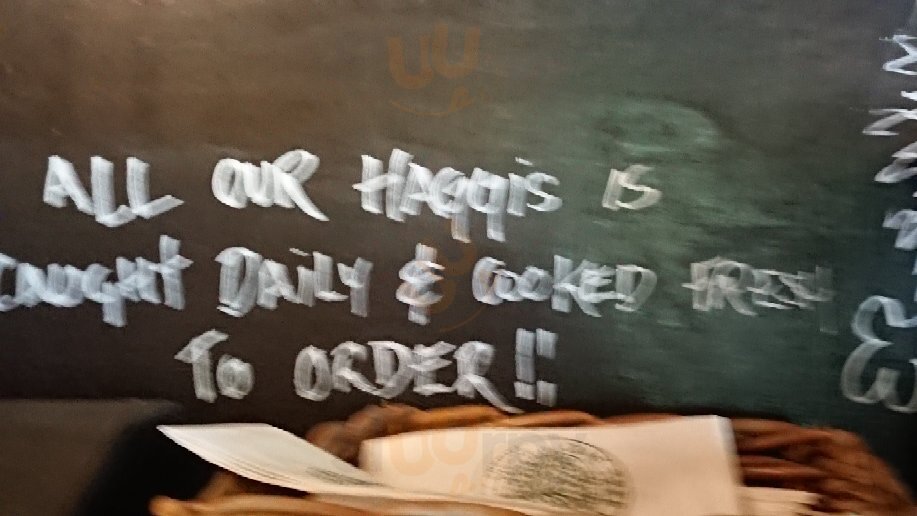 ALL OUR HAGGIS IS
CAUGHT DAILY & COOKED FRESH
TO ORDER!!